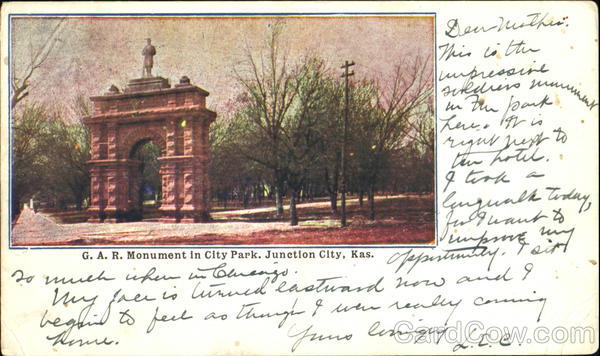 Dear Mother.
This is the
impressive
soldiers monument
in the park
here. It is
right next to
the hotel.
I took a
long walk today,
for I want to
improve my
opportunity. I sit
so much when in Chicago.
My face is turned eastward now and I
begin to feel as though I were really coming
home. Yours
L.E.C.
G. A. R. Monument in City Park. Junction City, Kas.
CardCow.com